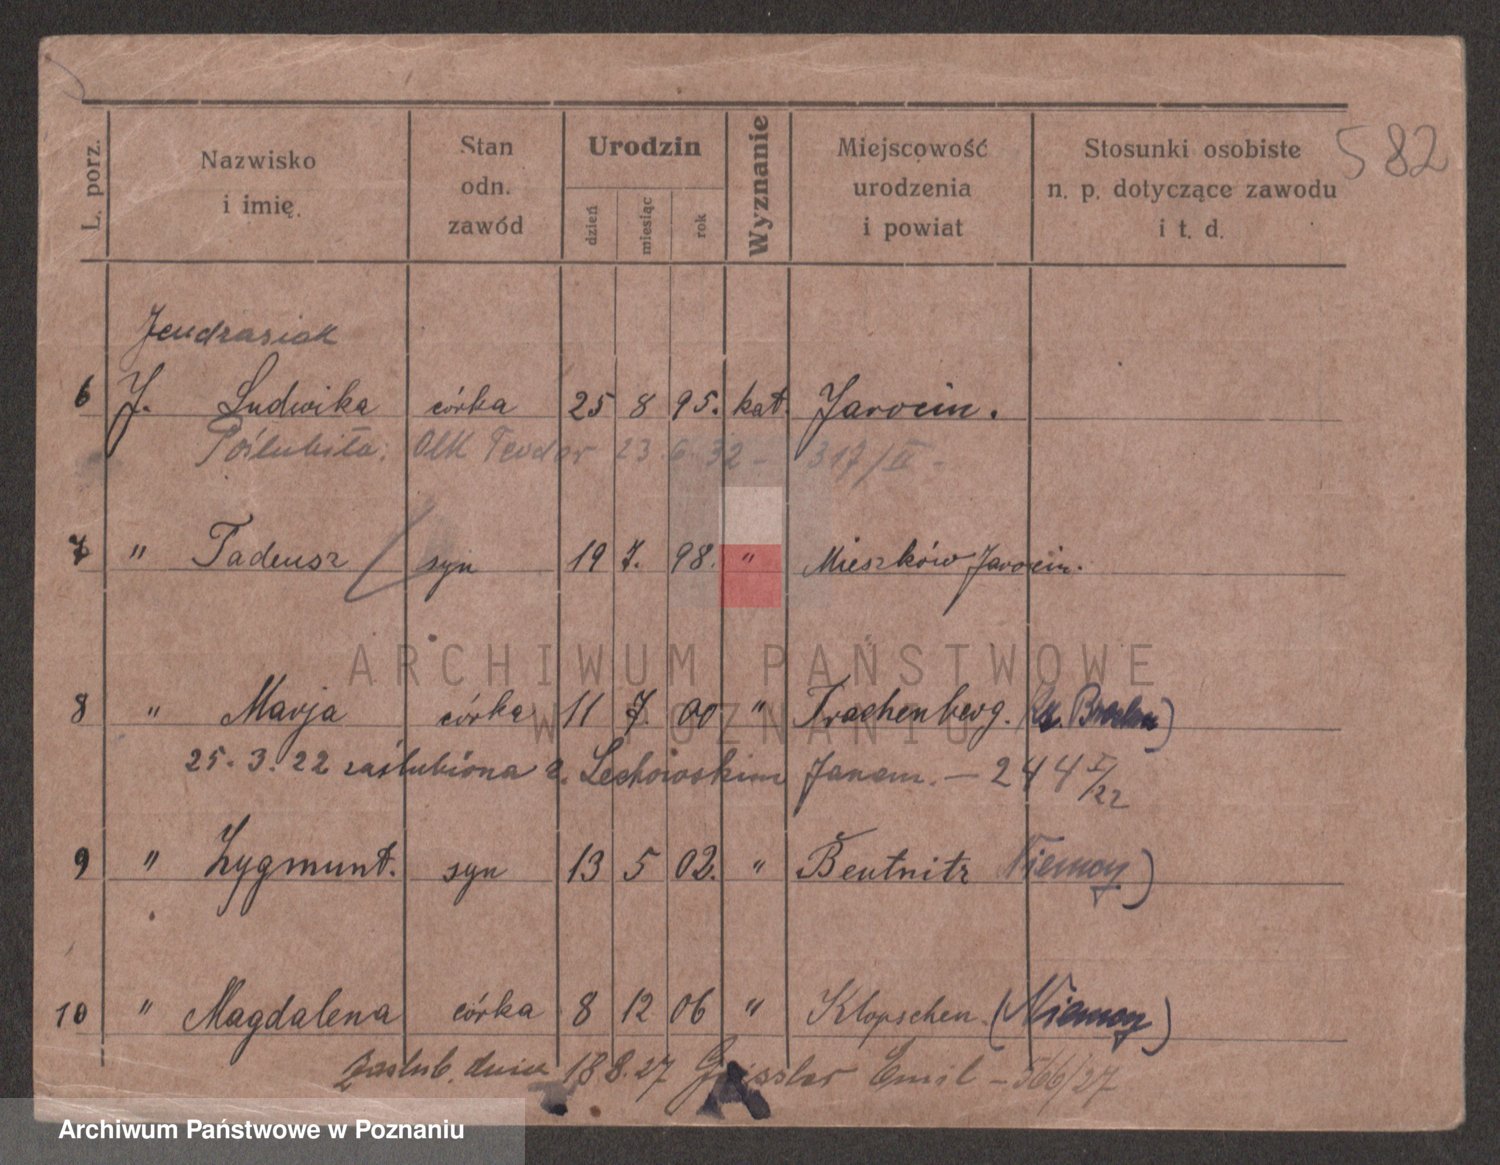 582
L. porz.
Nazwisko
i imię.
Stan
odn.
zawód
Urodzin
dzień
miesiąc
rok
Wyznanie
Miejscowość
urodzenia
i powiat
Stosunki osobiste
n. p. dotyczące zawodu
i t. d.
Jendrasiak
6 J. Ludwika córka 25 8 95. kat. Jarocin.
Poślubiła: Olk Teodor 23 6 32 - 317/II -
7 " Tadeusz syn 19 7. 98. " Mieszków Jarocin.
8 " Marja córka 11 7. 00 " Trachenberg.
25. 3. 22 zaślubiona z. Lechowskim Janem. - 244 I/22
9 " Zygmunt. syn 13 5 02. " Beutnitz Niemcy)
10 " Magdalena córka 8 12 06 " Klopschen. (Niemcy)
zaślub. dnia 18 8. 27 Emil - 566/27
ARCHIWUM PAŃSTWOWE
W POZNANIU
Archiwum Państwowe w Poznaniu